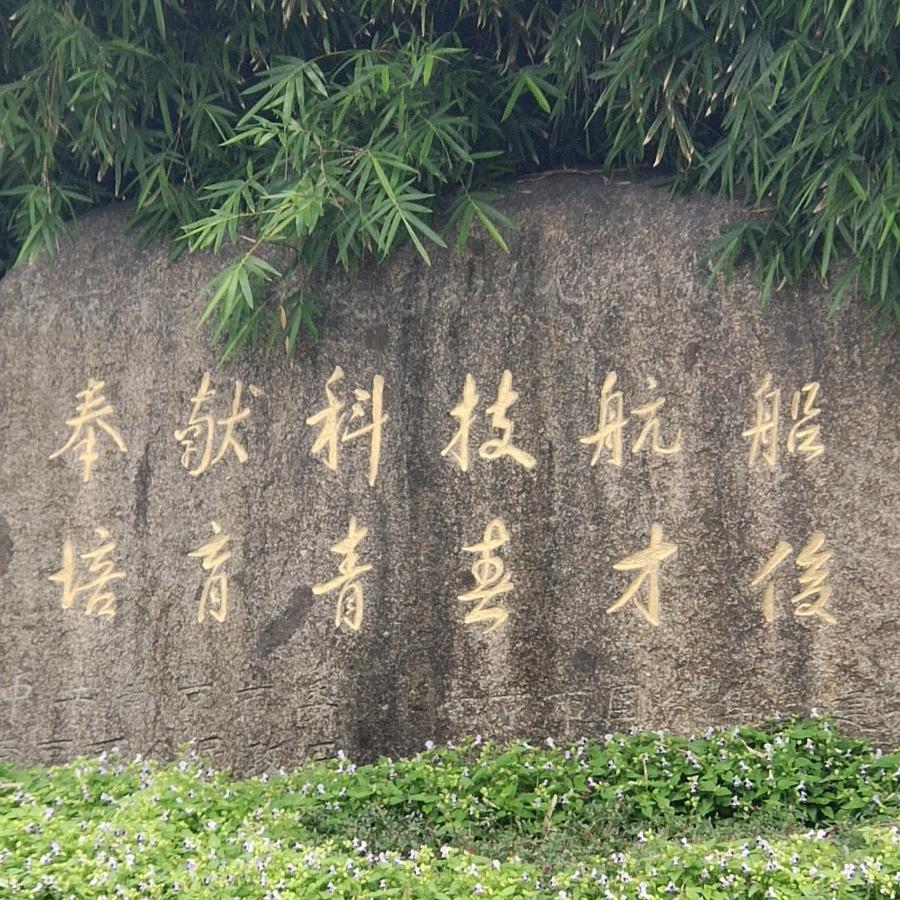 奉献科技航船
培育青春才俊